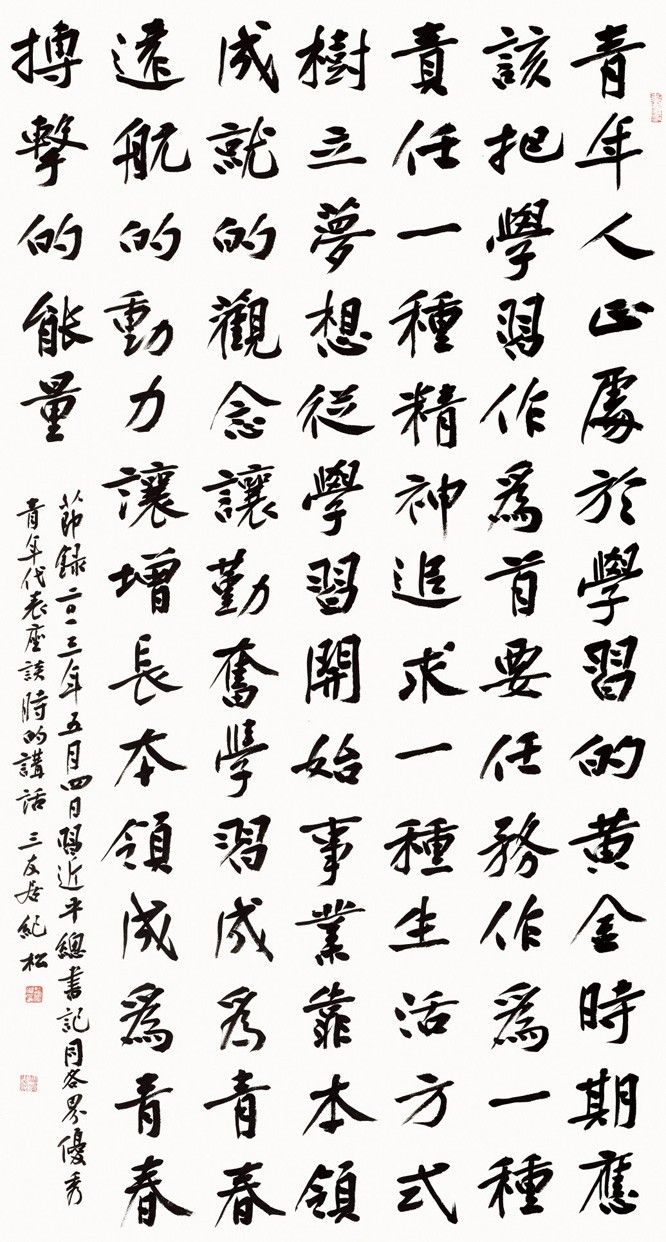 青年人正處於學習的黃金時期應
該把學習作爲首要任務作爲一種
責任一種精神追求一種生活方式
樹立夢想從學習開始事業靠本領
成就的觀念讓勤奮學習成爲青春
遠航的動力讓增長本領成爲青春
搏擊的能量
節録二〇一三年五月四日習近平總書記同各界優秀
青年代表座談時的講話 三友居紀松